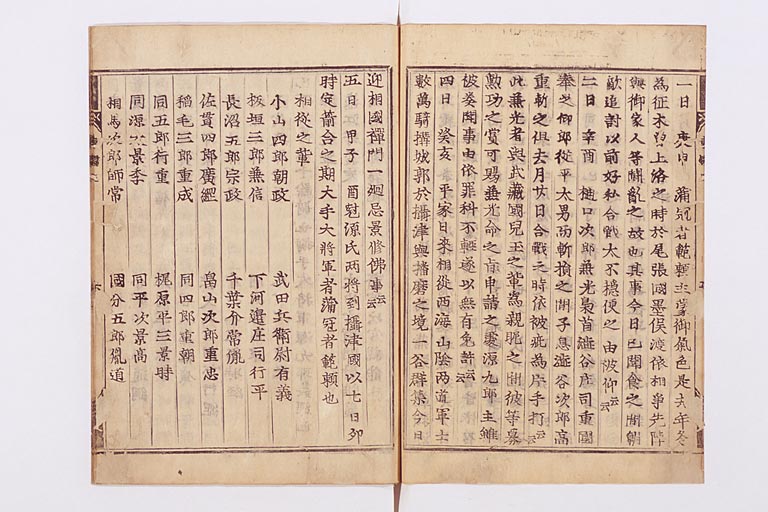 一日 庚申 蒲冠者範頼主蒙御氣色是去年冬
為征木曽上洛之時於尾張國墨俣渡依相爭先陣
與御家人等鬪亂之故也其事今日已聞食之間朝
敵追討以前好私合戰太不穩便之由被仰云云
二日 辛酉 樋口次郎兼光梟首澁谷庄司重國
奉之仰郎從平太男而斬損之間子息澁谷次郎高
重斬之但去月廿日合戰之時依被疵為片手打云云
此兼光者與武藏國兒玉之輩為親眤之間彼等募
勲功之賞可賜兼光命之旨申請之處源九郎主雖
被奏聞事由依罪科不輕遂以無有免許云云
四日 癸亥 平家日来相從西海山陰两道軍士
數萬騎搆城郭於攝津與播磨之境一谷群集今日
迎相國禪門一廻忌景修佛事云云
五日 甲子 酉尅源氏两將到攝津國以七日卯
時定箭合之期大手大將軍者蒲冠者範頼也
相從之輩
小山四郎朝政 武田兵衛尉有義
板垣三郎兼信 下河邊庄司行平
長沼五郎宗政 千葉介常胤
佐貫四郎廣綱 畠山次郎重忠
稲毛三郎重成 同四郎重朝
同五郎行重 梶原平三景時
同源太景季 同平次景高
相馬次郎師常 國分五郎胤道